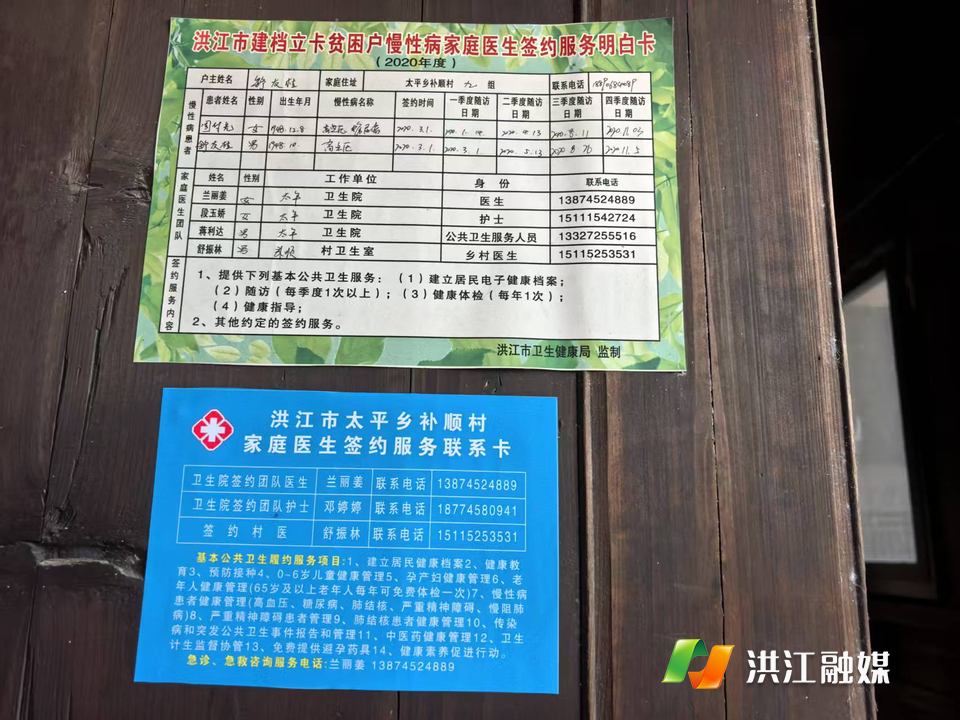 洪江市建档立卡贫困户慢性病家庭医生签约服务明白卡
(2020年度)
户主姓名 舒友桂 家庭住址 太平乡补顺村 九 组 联系电话
慢性病患者 患者姓名 性别 出生年月 慢性病名称 签约时间 一季度随访日期 二季度随访日期 三季度随访日期 四季度随访日期
女 1948.12.8 2020.3.1. 2020.4.13 2020.8.11 2020.11.03
舒友桂 男 1948.10 高血压 2020.3.1 2020.3.1 2020.5.13 2020.8.26 2020.11.5
家庭医生团队 姓名 性别 工作单位 身份 联系电话
兰丽姜 女 太平 卫生院 医生 13874524889
段玉娇 女 太平 卫生院 护士 15111542724
蒋利达 男 太平 卫生院 公共卫生服务人员 13327255516
舒振林 男 补顺 村卫生室 乡村医生 15115253531
签约服务内容 1、提供下列基本公共卫生服务：(1)建立居民电子健康档案；
(2)随访(每季度1次以上)；(3)健康体检(每年1次)；
(4)健康指导；
2、其他约定的签约服务。
洪江市卫生健康局 监制
洪江市太平乡补顺村
家庭医生签约服务联系卡
卫生院签约团队医生 兰丽姜 联系电话 13874524889
卫生院签约团队护士 邓婷婷 联系电话 18774580941
签约村医 舒振林 联系电话 15115253531
基本公共卫生履约服务项目:1、建立居民健康档案2、健康教
育3、预防接种4、0-6岁儿童健康管理5、孕产妇健康管理6、老
年人健康管理(65岁及以上老年人每年可免费体检一次)7、慢性病
患者健康管理(高血压、糖尿病、肺结核、严重精神障碍、慢阻肺
病)8、严重精神障碍患者管理9、肺结核患者健康管理10、传染
病和突发公共卫生事件报告和管理11、中医药健康管理12、卫生
计生监督协管13、免费提供避孕药具14、健康素养促进行动。
急诊、急救咨询服务电话:兰丽姜 13874524889
洪江融媒